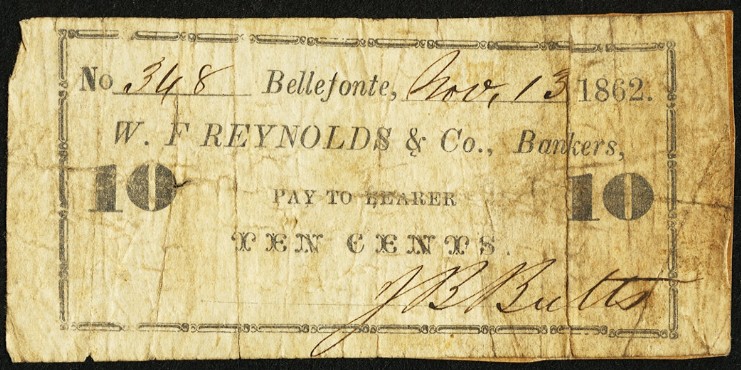 No 348 Bellefonte, Nov. 13 1862.
W. F REYNOLDS & Co., Bankers,
10 PAY TO BEARER 10
TEN CENTS.
J B Butts